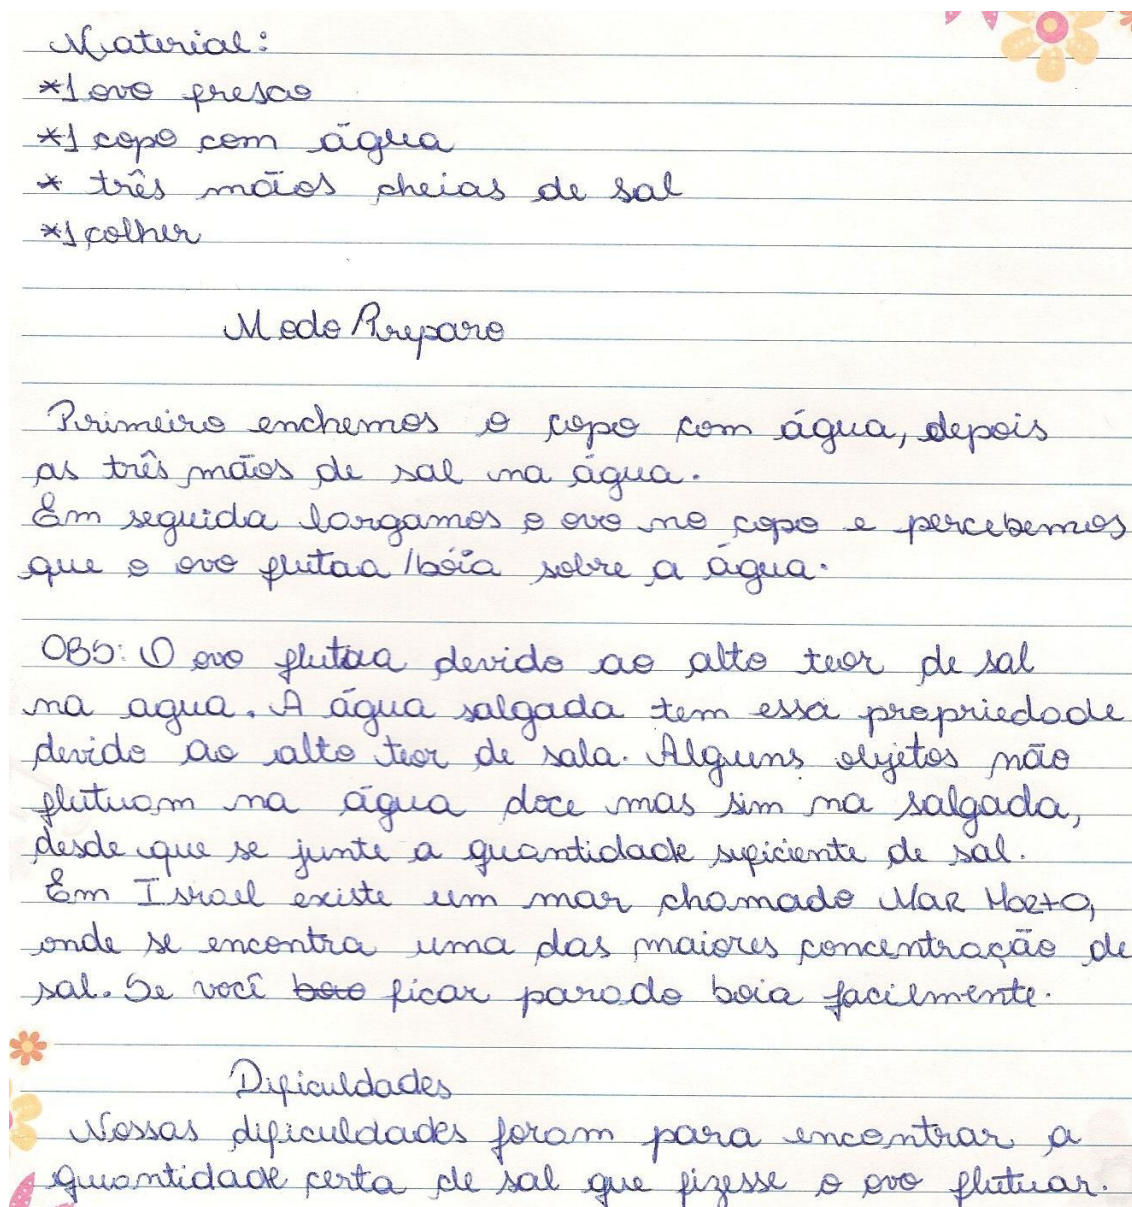 Material:
*1 ovo fresco
*1 copo com água
* três mãos cheias de sal
*1 colher
Modo Preparo
Primeiro enchemos o copo com água, depois
as três mãos de sal na água.
Em seguida largamos o ovo no copo e percebemos
que o ovo flutaa/bóia sobre a água.
OBS: O ovo flutaa devido ao alto teor de sal
na agua. A água salgada tem essa propriedade
devido ao alto teor de sala. Alguns objetos não
flutuam na água doce mas sim na salgada,
desde que se junte a quantidade suficiente de sal.
Em Israel existe um mar chamado Mar Morto,
onde se encontra uma das maiores concentração de
sal. Se você boo ficar parado boia facilmente.
Dificuldades
Nossas dificuldades foram para encontrar a
quantidade certa de sal que fizesse o ovo flutuar.